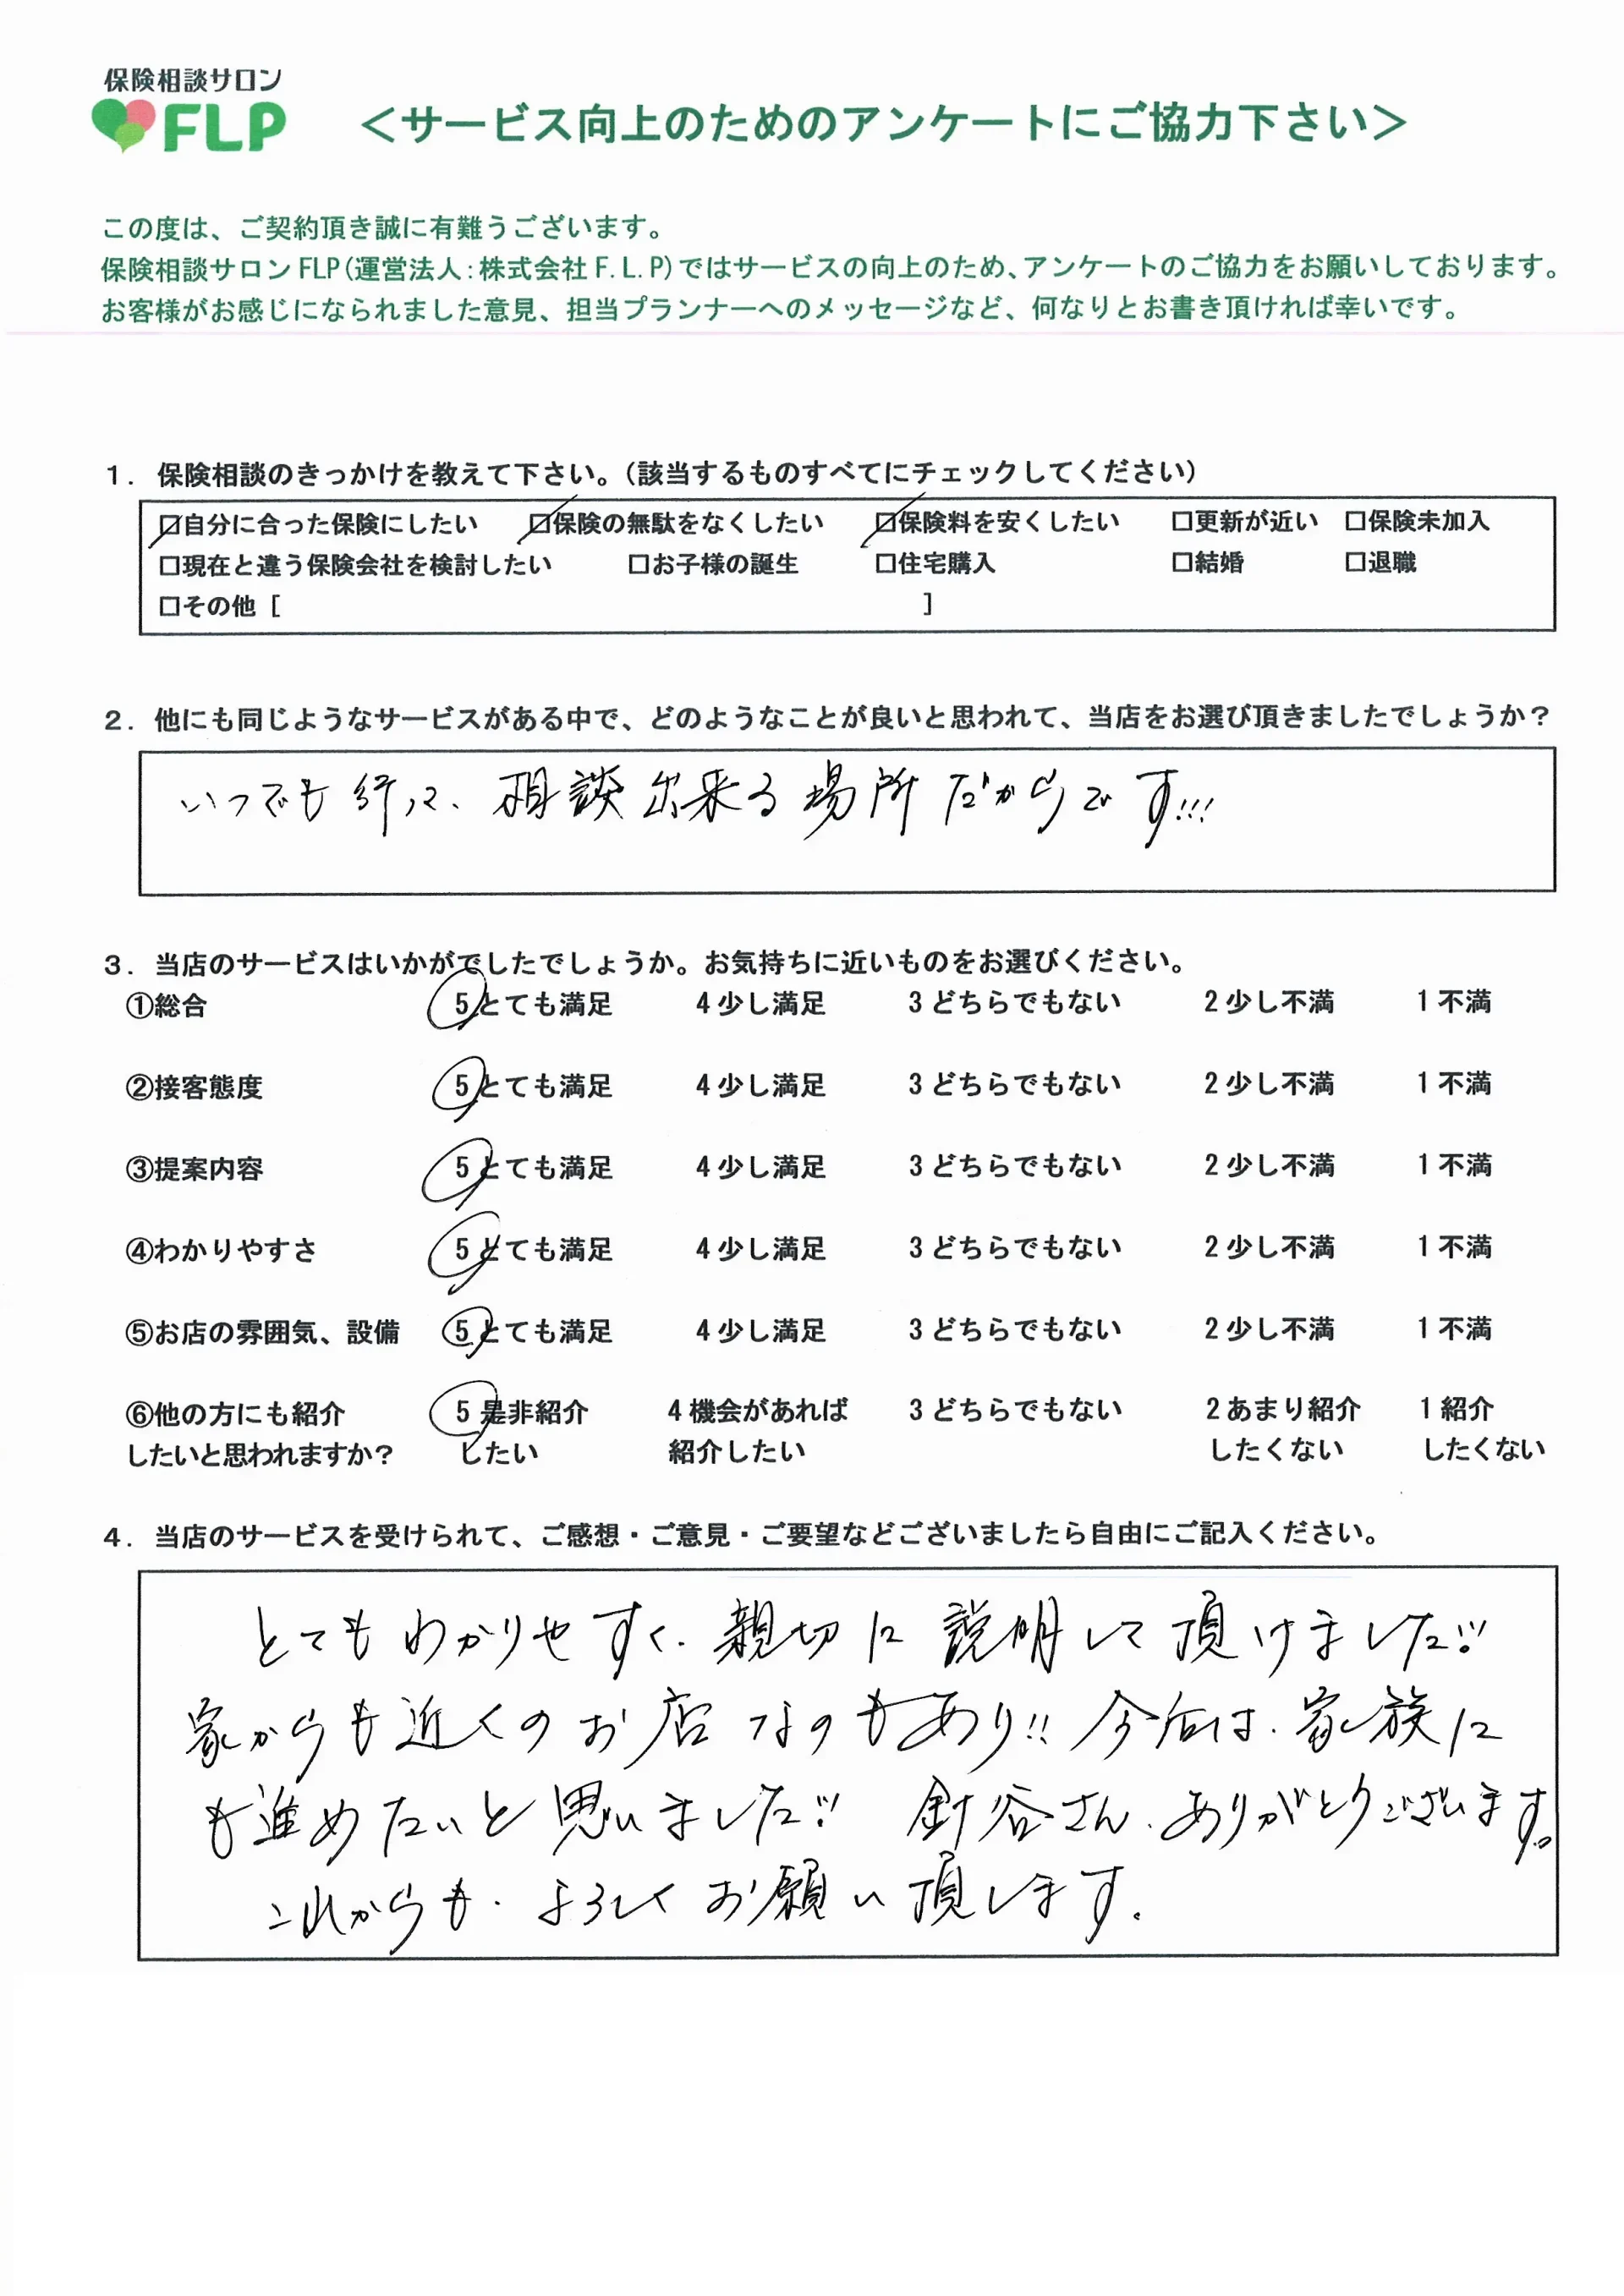 保険相談サロン
FLP
＜サービス向上のためのアンケートにご協力下さい＞
この度は、ご契約頂き誠に有難うございます。
保険相談サロンFLP(運営法人:株式会社F.L.P)ではサービスの向上のため、アンケートのご協力をお願いしております。
お客様がお感じになられました意見、担当プランナーへのメッセージなど、何なりとお書き頂ければ幸いです。
1. 保険相談のきっかけを教えて下さい。(該当するものすべてにチェックしてください)
☑自分に合った保険にしたい ☑保険の無駄をなくしたい ☑保険料を安くしたい □更新が近い □保険未加入
□現在と違う保険会社を検討したい □お子様の誕生 □住宅購入 □結婚 □退職
□その他 [ ]
2. 他にも同じようなサービスがある中で、どのようなことが良いと思われて、当店をお選び頂きましたでしょうか?
いつでも行って、相談出来る場所だからです!!!
3. 当店のサービスはいかがでしたでしょうか。お気持ちに近いものをお選びください。
①総合 5とても満足 4少し満足 3どちらでもない 2少し不満 1不満
②接客態度 5とても満足 4少し満足 3どちらでもない 2少し不満 1不満
③提案内容 5とても満足 4少し満足 3どちらでもない 2少し不満 1不満
④わかりやすさ 5とても満足 4少し満足 3どちらでもない 2少し不満 1不満
⑤お店の雰囲気、設備 5とても満足 4少し満足 3どちらでもない 2少し不満 1不満
⑥他の方にも紹介 5是非紹介 4機会があれば 3どちらでもない 2あまり紹介 1紹介
したいと思われますか? したい 紹介したい したくない したくない
4. 当店のサービスを受けられて、ご感想・ご意見・ご要望などございましたら自由にご記入ください。
とてもわかりやすく、親切に説明して頂けました!!
家からも近くのお店なのもあり!! 今后は、家族に
も進めたいと思いました!! 針谷さん、ありがとうございます。
これからも、よろしくお願い頂します。